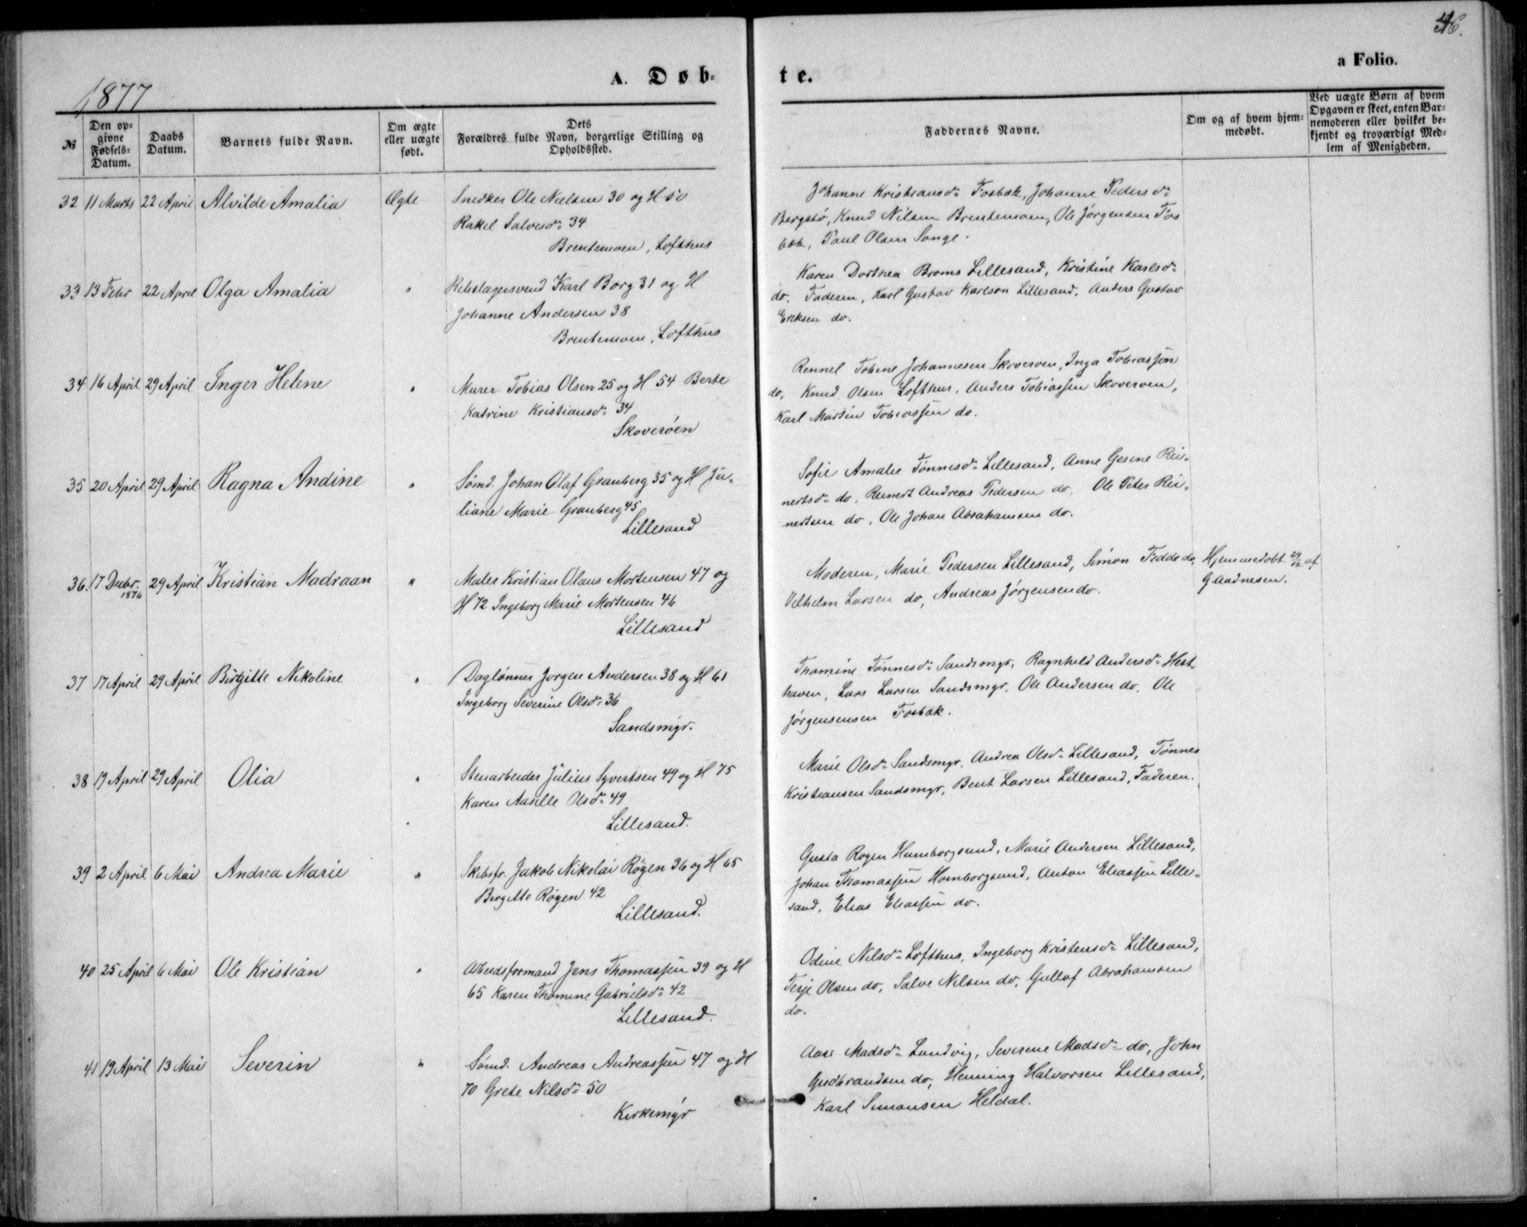 1877
A. Døb-
te.
46.
a Folio.
№
Den op-
givne
Fødsels-
Datum.
Daabs
Datum.
Barnets fulde Navn.
Om ægte
eller uægte
født.
Dets
Forældres fulde Navn, borgerlige Stilling og
Opholdssted.
Faddernes Navne.
Om og af hvem hjem-
medøbt.
Ved uægte Børn af hvem
Opgaven er skeet, enten Bar-
nemoderen eller hvilket be-
kjendt og troværdigt Med-
lem af Menigheden.
32 11 Marts 22 April Alvilde Amalia Ægte Snedker Ole Nielsen 30 og H 50
Rakel Salvesd. 34
Brentemoen, Lofthus
Johanne Kristiansd. Fosbæk, Johanne Pedersd.
Bergstø, Knud Nilsen Brentemoen, Ole Jørgensen Fos
bæk, Paul Olsen Songe.
33 13 Febr 22 April Olga Amalia " Rebslagersvend Karl Borg 31 og H
Johanne Andersen 38
Brentemoen, Lofthus
Karen Dorthea Broms Lillesand, Kristine Karlsd.
do, Faderen, Karl Gustav Karlson Lillesand, Anders Gustav
Eriksen do.
34 16 April 29 April Inger Helene " Murer Tobias Olsen 25 og H 54 Berte
Katrine Kristiansd. 34
Skoverøen
Rennel Tobine Johannesen Skoverøen, Inga Tobiassen
do, Knud Olsen Lofthus, Anders Tobiassen Skoverøen,
Karl Martin Tobiassen do.
35 20 April 29 April Ragna Andine " Sømd. Johan Olaf Granberg 35 og H Ju-
liane Marie Granberg 45
Lillesand
Sofie Amalie Tønnesd. Lillesand, Anne Gesine Rei-
nertsd. do, Reinert Andreas Pedersen do, Ole Peter Rei-
nertsen do, Ole Johan Abrahamsen do.
36 17 Decbr. 1876 29 April Kristian Madraan " Maler Kristian Olaus Mortensen 47 og
H 72 Ingeborg Marie Mortensen 46
Lillesand
Moderen, Marie Pedersen Lillesand, Simon Fedde do,
Vilhelm Larsen do, Andreas Jørgensen do.
Hjemmedøbt 29/12 af
G Aadnesen.
37 17 April 29 April Birgitte Nikoline " Daglønner Jørgen Andersen 38 og H 61
Ingeborg Severine Olsd. 36
Sandsmyr.
Thomine Tønnesd. Sandsmyr, Ragnhild Andersd. Hest
haven, Lars Larsen Sandsmyr, Ole Andersen do, Ole
Jørgensensen Fosbæk.
38 19 April 29 April Olia " Stenarbeider Julius Syvertsen 49 og H 75
Karen Aasille Olsd. 49
Lillesand.
Marie Olsd. Sandsmyr, Andrea Olsd. Lillesand, Tønnes
Kristiansen Sandsmyr, Bent Larsen Lillesand, Faderen.
39 2 April 6 Mai Andrea Marie " Skibsfr. Jakob Nikolai Røgen 36 og H 65
Birgitte Røgen 42
Lillesand.
Gusta Rogen Humborgsund, Marie Andersen Lillesand,
Johan Thomassen Homborgsund, Anton Eliassen Lille-
sand, Elias Eliassen do.
40 25 April 6 Mai Ole Kristian " Arbeidsformand Jens Thomassen 39 og H
65 Karen Thomine Gabrielsd. 42
Lillesand.
Odine Nilsd. Lofthus, Ingeborg Kristensd. Lillesand,
Terje Olsen do, Salve Nilsen do, Gullof Abrahamsen
do.
41 19 April 13 Mai Severin " Sømd. Andreas Andreassen 47 og H
70 Grete Nilsd. 50
Kirkemyr
Aase Madsd. Landvig, Severine Madsd. do, John
Gudbrandsen do, Henning Halvorsen Lillesand,
Karl Simonsen Heldal.